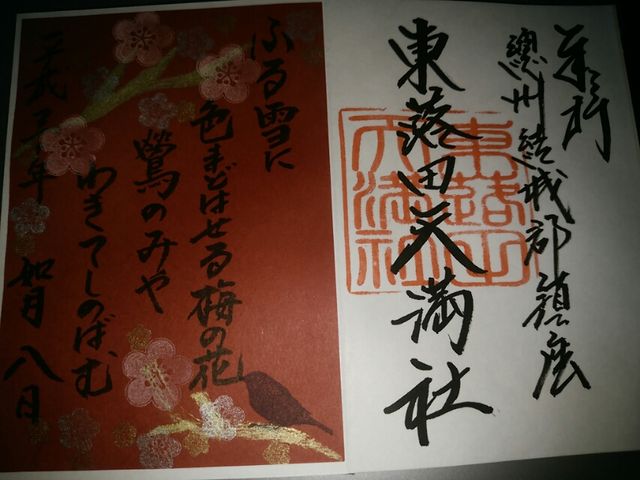 奉拝
總州結城郡鎮座
東蕗田天満社
東蕗田
天満社
ふる雪に
色まどはせる梅の花
鶯のみや
わきてしのばむ
平成三十年 如月 八日